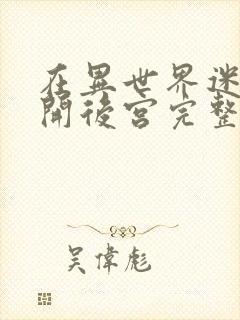 在異世界迷
開後宮完整
吳偉彪